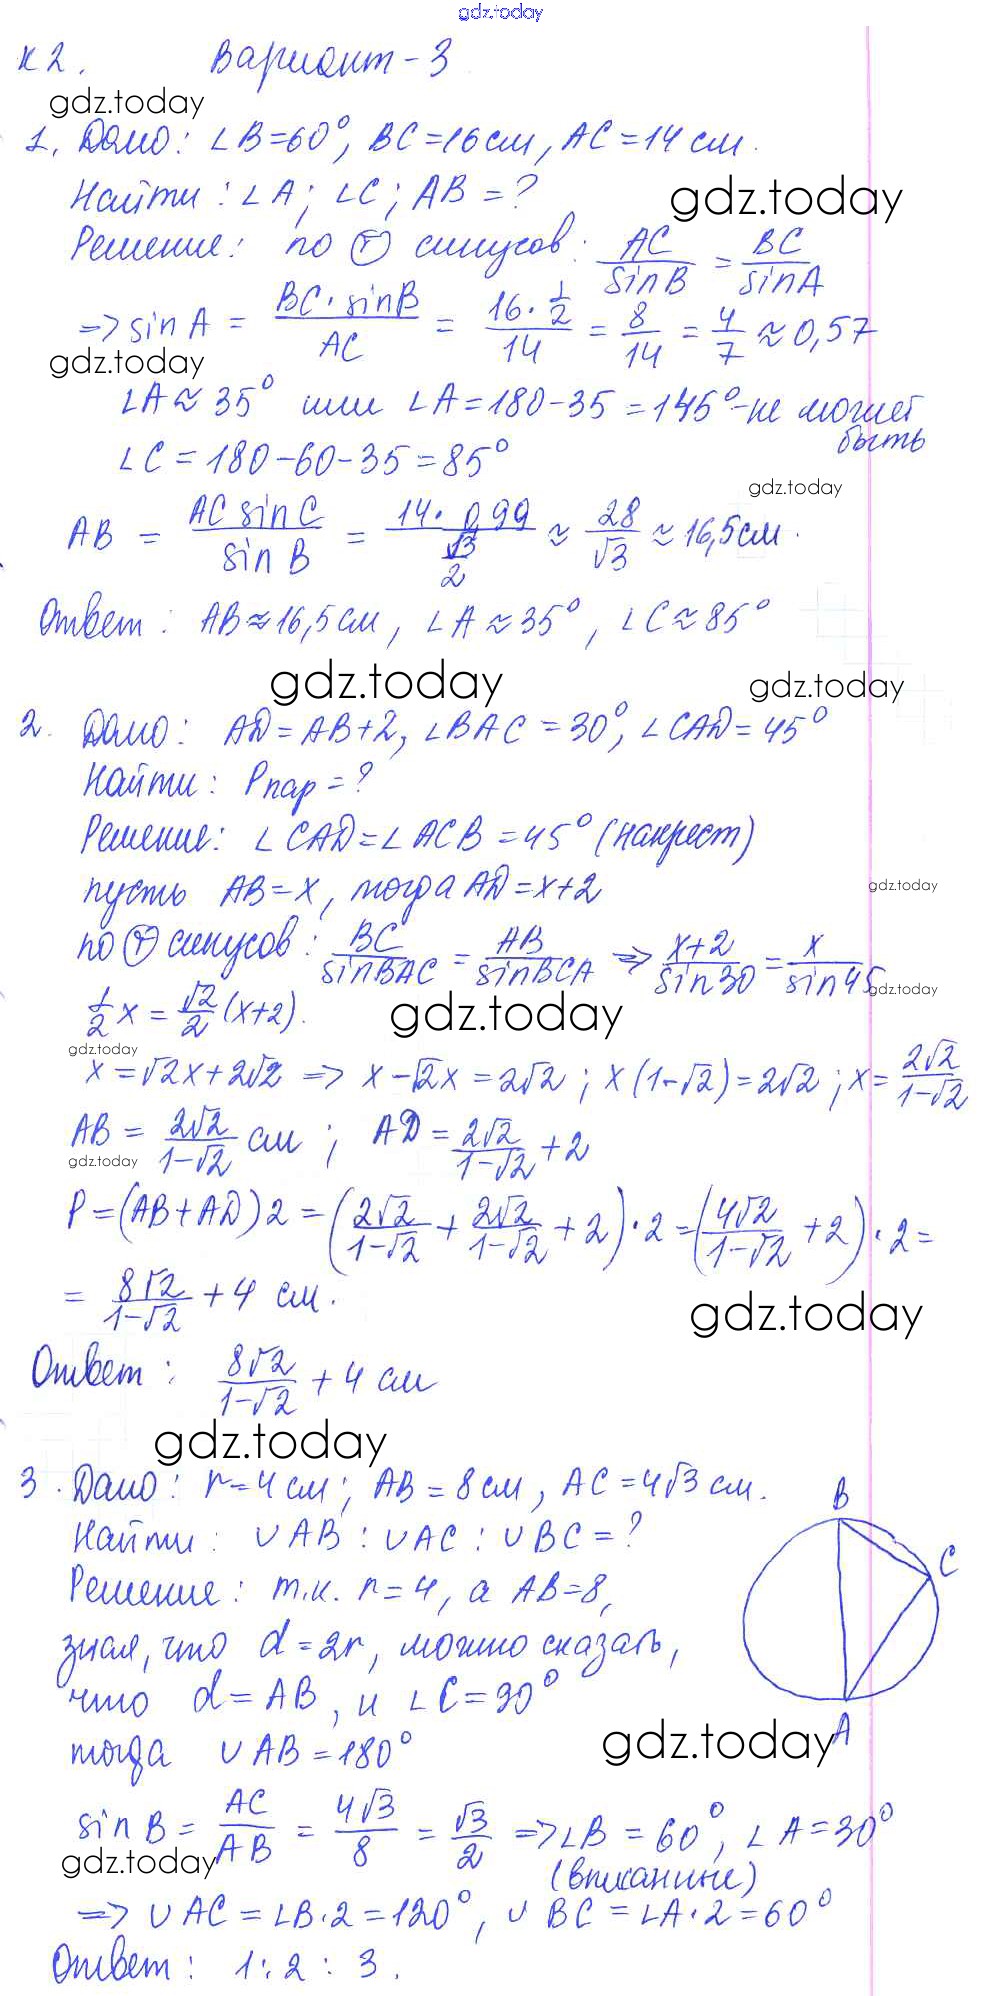 gdz.today
К 2. Вариант-3
gdz.today
1. Дано: ∠B=60°, BC=16см, AC=14 см.
Найти: ∠A; ∠C; AB=?
gdz.today
Решение: по (т) синусов: AC/sinB = BC/sinA
=> sin A = BC·sinB/AC = 16·1/2/14 = 8/14 = 4/7 ≈ 0,57
gdz.today
∠A≈35° или ∠A=180-35=145°-не может
быть
∠C=180-60-35=85°
gdz.today
AB = AC sinC/sin B = 14·0,99/(√3/2) ≈ 28/√3 ≈ 16,5см.
Ответ: AB≈16,5см, ∠A≈35°, ∠C≈85°
gdz.today
gdz.today
2. Дано: AD=AB+2, ∠BAC=30°, ∠CAD=45°
Найти: Pпар=?
Решение: ∠CAD=∠ACB=45° (накрест)
пусть AB=x, тогда AD=x+2
gdz.today
по (т) синусов: BC/sinBAC = AB/sinBCA => x+2/sin30 = x/sin45
gdz.today
1/2 x = √2/2 (x+2).
gdz.today
gdz.today
x=√2x+2√2 => x-√2x=2√2; x(1-√2)=2√2; x=2√2/1-√2
AB = 2√2/1-√2 см; AD = 2√2/1-√2 + 2
gdz.today
P=(AB+AD)2=(2√2/1-√2 + 2√2/1-√2 + 2)·2=(4√2/1-√2 + 2)·2=
= 8√2/1-√2 + 4 см.
gdz.today
Ответ: 8√2/1-√2 + 4 см
gdz.today
3. Дано: r=4см; AB=8см, AC=4√3 см.
Найти: ∪AB : ∪AC : ∪BC=?
Решение: т.к. r=4, а AB=8,
зная, что d=2r, можно сказать,
что d=AB, и ∠C=90°
тогда ∪AB=180°
gdz.today
B
C
A
sin B = AC/AB = 4√3/8 = √3/2 => ∠B=60°, ∠A=30°
gdz.today
(вписанные)
=> ∪AC=∠B·2=120°, ∪BC=∠A·2=60°
Ответ: 1:2:3.